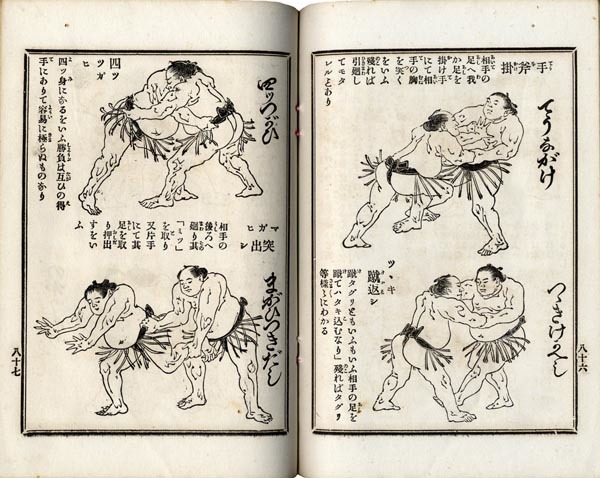 手斧掛
相手の
足へ我
か足を
掛け手
にて相
手の胸
を突く
をいふ
殘れば
引廻し
てモタ
レルとあり
てうながけ
ツヽキ
蹴返シ
蹴タグリともいふもいふ相手の足を
蹴てハタキ込むなり」殘ればタグリ
等様々にわかる
つきけかへし
八十六
四ツ
ツガ
ヒ
四ツ身になるをいふ勝負は互ひの得
手にありて容易に極らぬものなり
四ツつがひ
マ
ガ突
ヒ出
シ
相手の
後ろへ
廻り其
「ミツ」
を取り
又片手
にて其
足を取
り押出
すをい
ふ
まがひつきだし
八十七